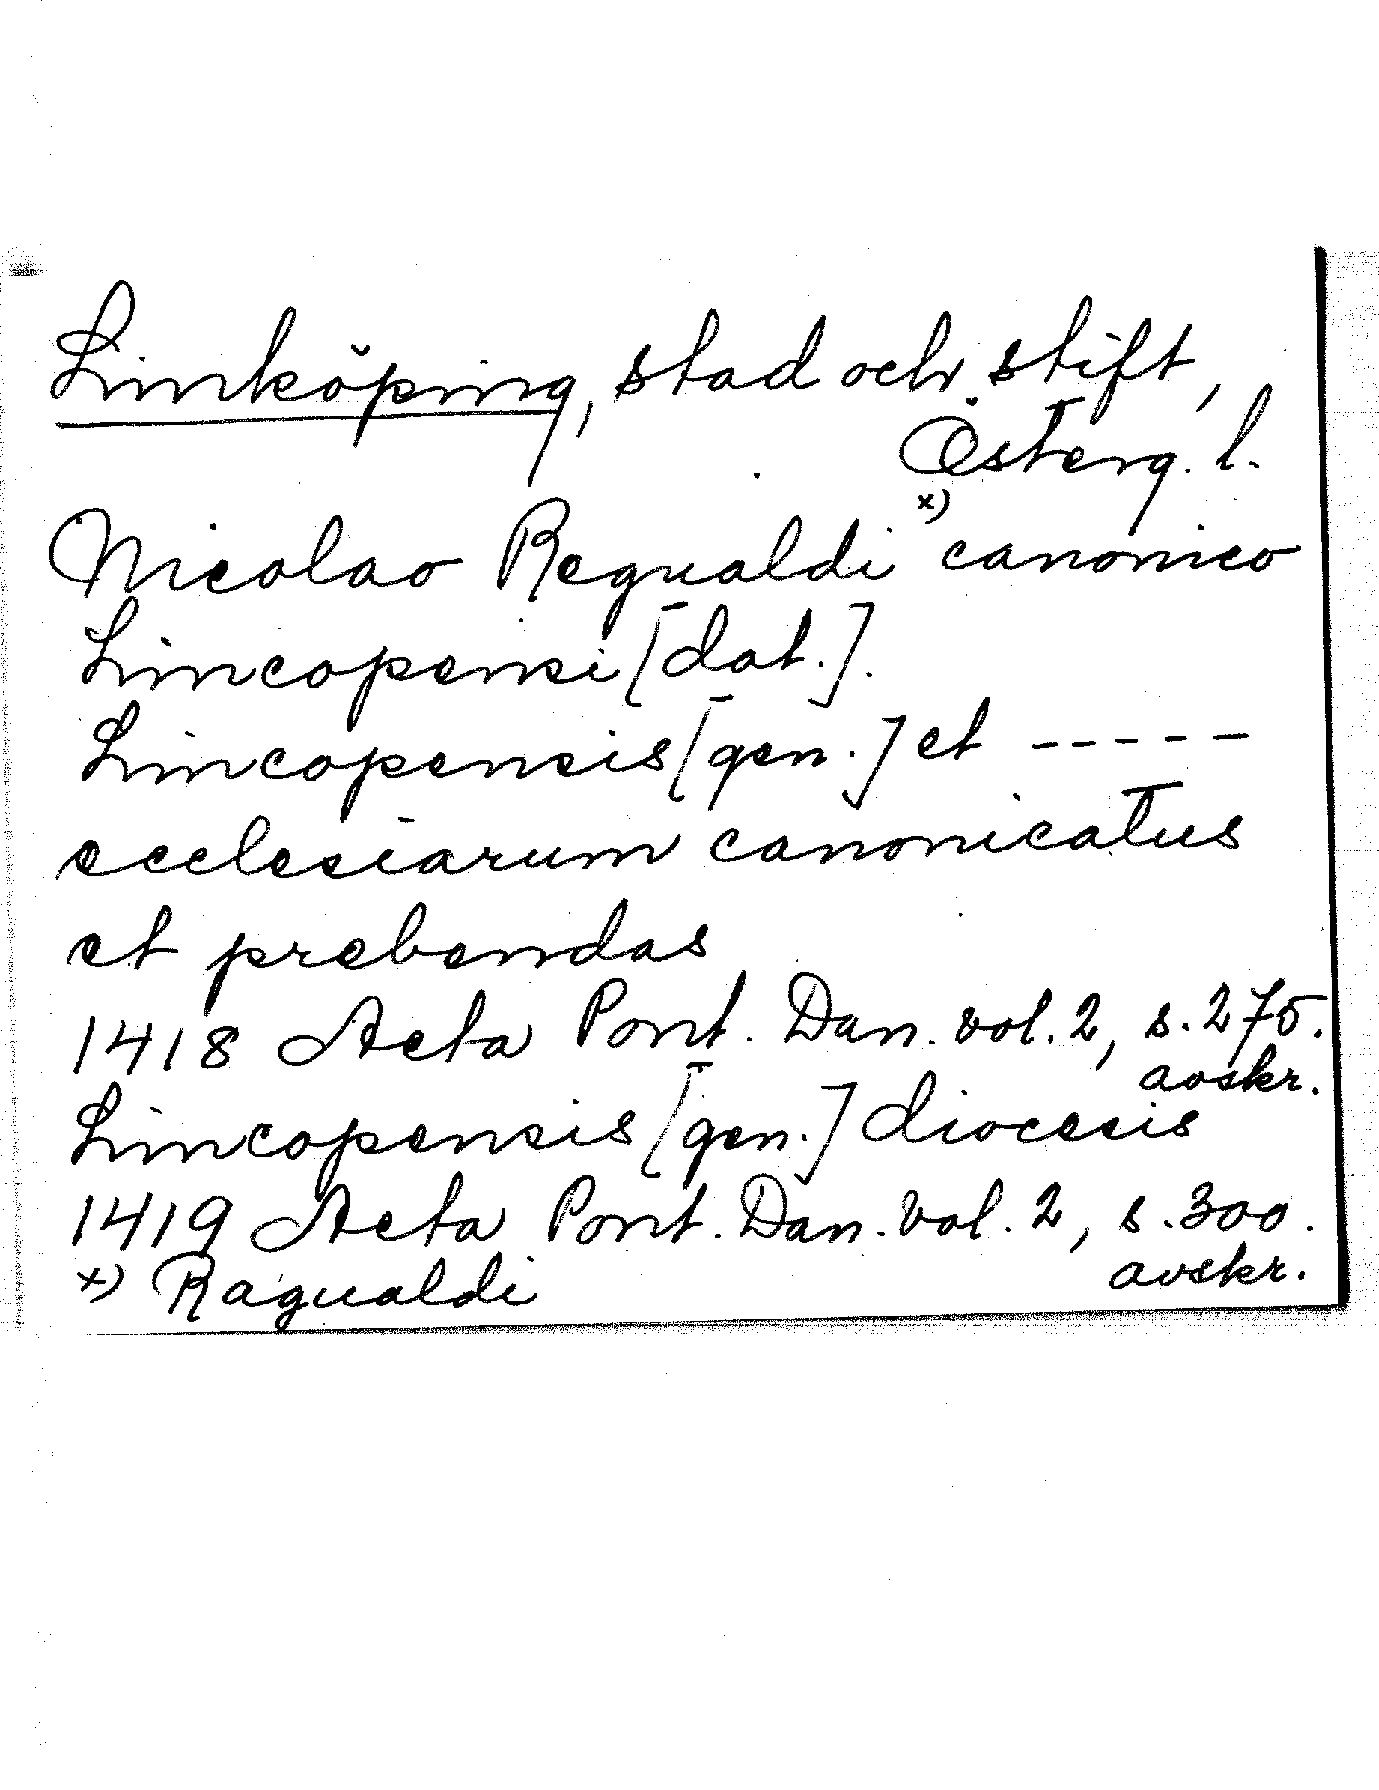 Linköping, stad och stift,
Österg. l.
Nicolao Regualdi x) canonico
Lincopensi [dat.].
Lincopensis [gen.] et -----
ecclesiarum canonicatus
et prebendas
1418 Acta Pont. Dan. vol. 2, s. 275.
avskr.
Lincopensis [gen.] diocesis
1419 Acta Pont. Dan. vol. 2, s. 300.
avskr.
x) Ragualdi